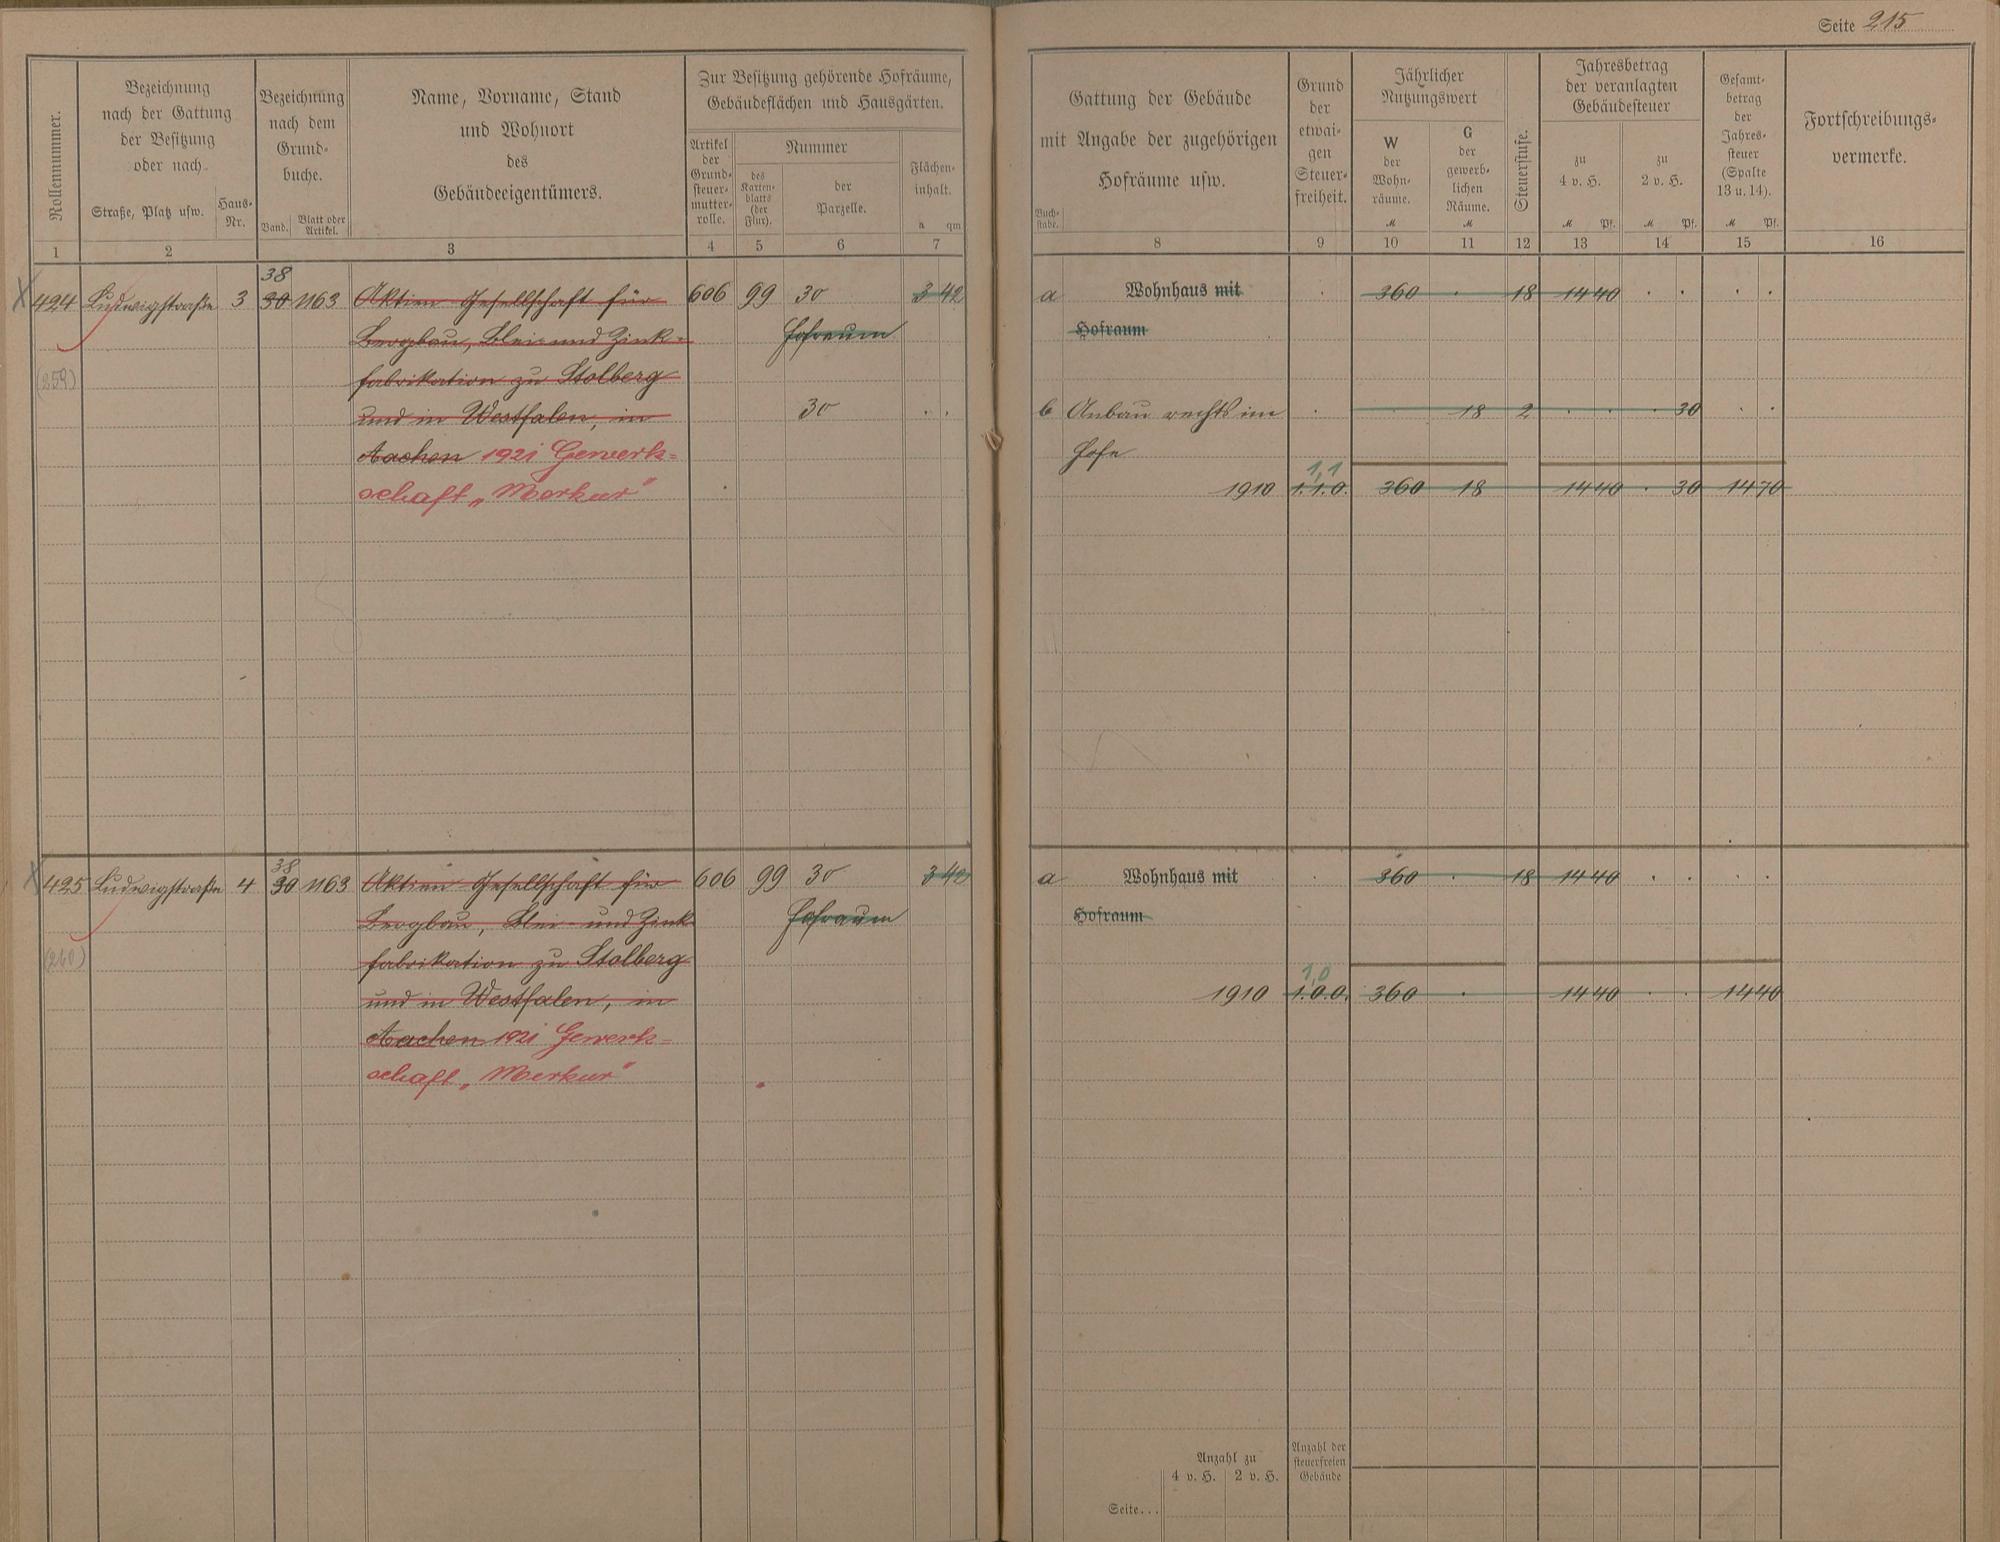 Seite 215
Rollennummer.
Bezeichnung
nach der Gattung
der Besitzung
oder nach
Straße, Platz usw.
Haus-
Nr.
Bezeichnung
nach dem
Grund-
buche.
Band.
Blatt oder
Artikel.
Name, Vorname, Stand
und Wohnort
des
Gebäudeeigentümers.
Zur Besitzung gehörende Hofräume,
Gebäudeflächen und Hausgärten.
Artikel
der
Grund-
steuer-
mutter-
rolle.
Nummer
des
Karten-
blatts
(der
Flur).
der
Parzelle.
Flächen-
inhalt.
a qm
1 2 3 4 5 6 7
Gattung der Gebäude
mit Angabe der zugehörigen
Hofräume usw.
Buch-
stabe.
Grund
der
etwai-
gen
Steuer-
freiheit.
Jährlicher
Nutzungswert
W
der
Wohn-
räume.
M
G
der
gewerb-
lichen
Räume.
M
Steuerstufe.
Jahresbetrag
der veranlagten
Gebäudesteuer
zu
4 v. H.
M Pf.
zu
2 v. H.
M Pf.
Gesamt-
betrag
der
Jahres-
steuer
(Spalte
13 u. 14).
M Pf.
Fortschreibungs-
vermerke.
8 9 10 11 12 13 14 15 16
38
424 Ludwigstraße 3 30 1163 Aktien Gesellschaft für 606 99 30 3 42
Bergbau, Blei- und Zink- Hofraum
(259) fabrikation zu Stolberg
und in Westfalen, in 30 . .
Aachen 1921 Gewerk=
schaft „Merkur"
a Wohnhaus mit . 360 . 18 14 40 . . . .
Hofraum
b Anbau rechts im . 18 2 . . . 30 . .
Hofe
1,1
1910 1.1.0. 360 18 14 40 . 30 14 70
38
425 Ludwigstraße 4 30 1163 Aktien-Gesellschaft für 606 99 30 3 40
Bergbau, Blei- und Zink Hofraum
(260) fabrikation zu Stolberg
und in Westfalen, in
Aachen 1921 Gewerk=
schaft „Merkur"
a Wohnhaus mit . 360 . 18 14 40 . . . .
Hofraum
1,0
1910 1.0.0. 360 . 14 40 . . 14 40
Anzahl zu
4 v. H. 2 v. H.
Anzahl der
steuerfreien
Gebäude
Seite...